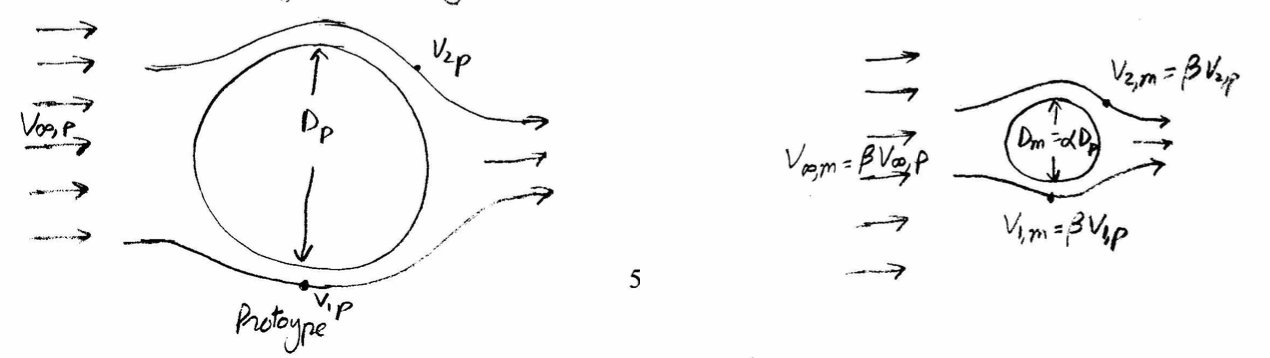 V₂p
V∞,p
Dp
V₁p
Protoype
5
V₂,m = βV₂,p
Dm = αDp
V∞,m = βV∞,p
V₁,m = βV₁,p